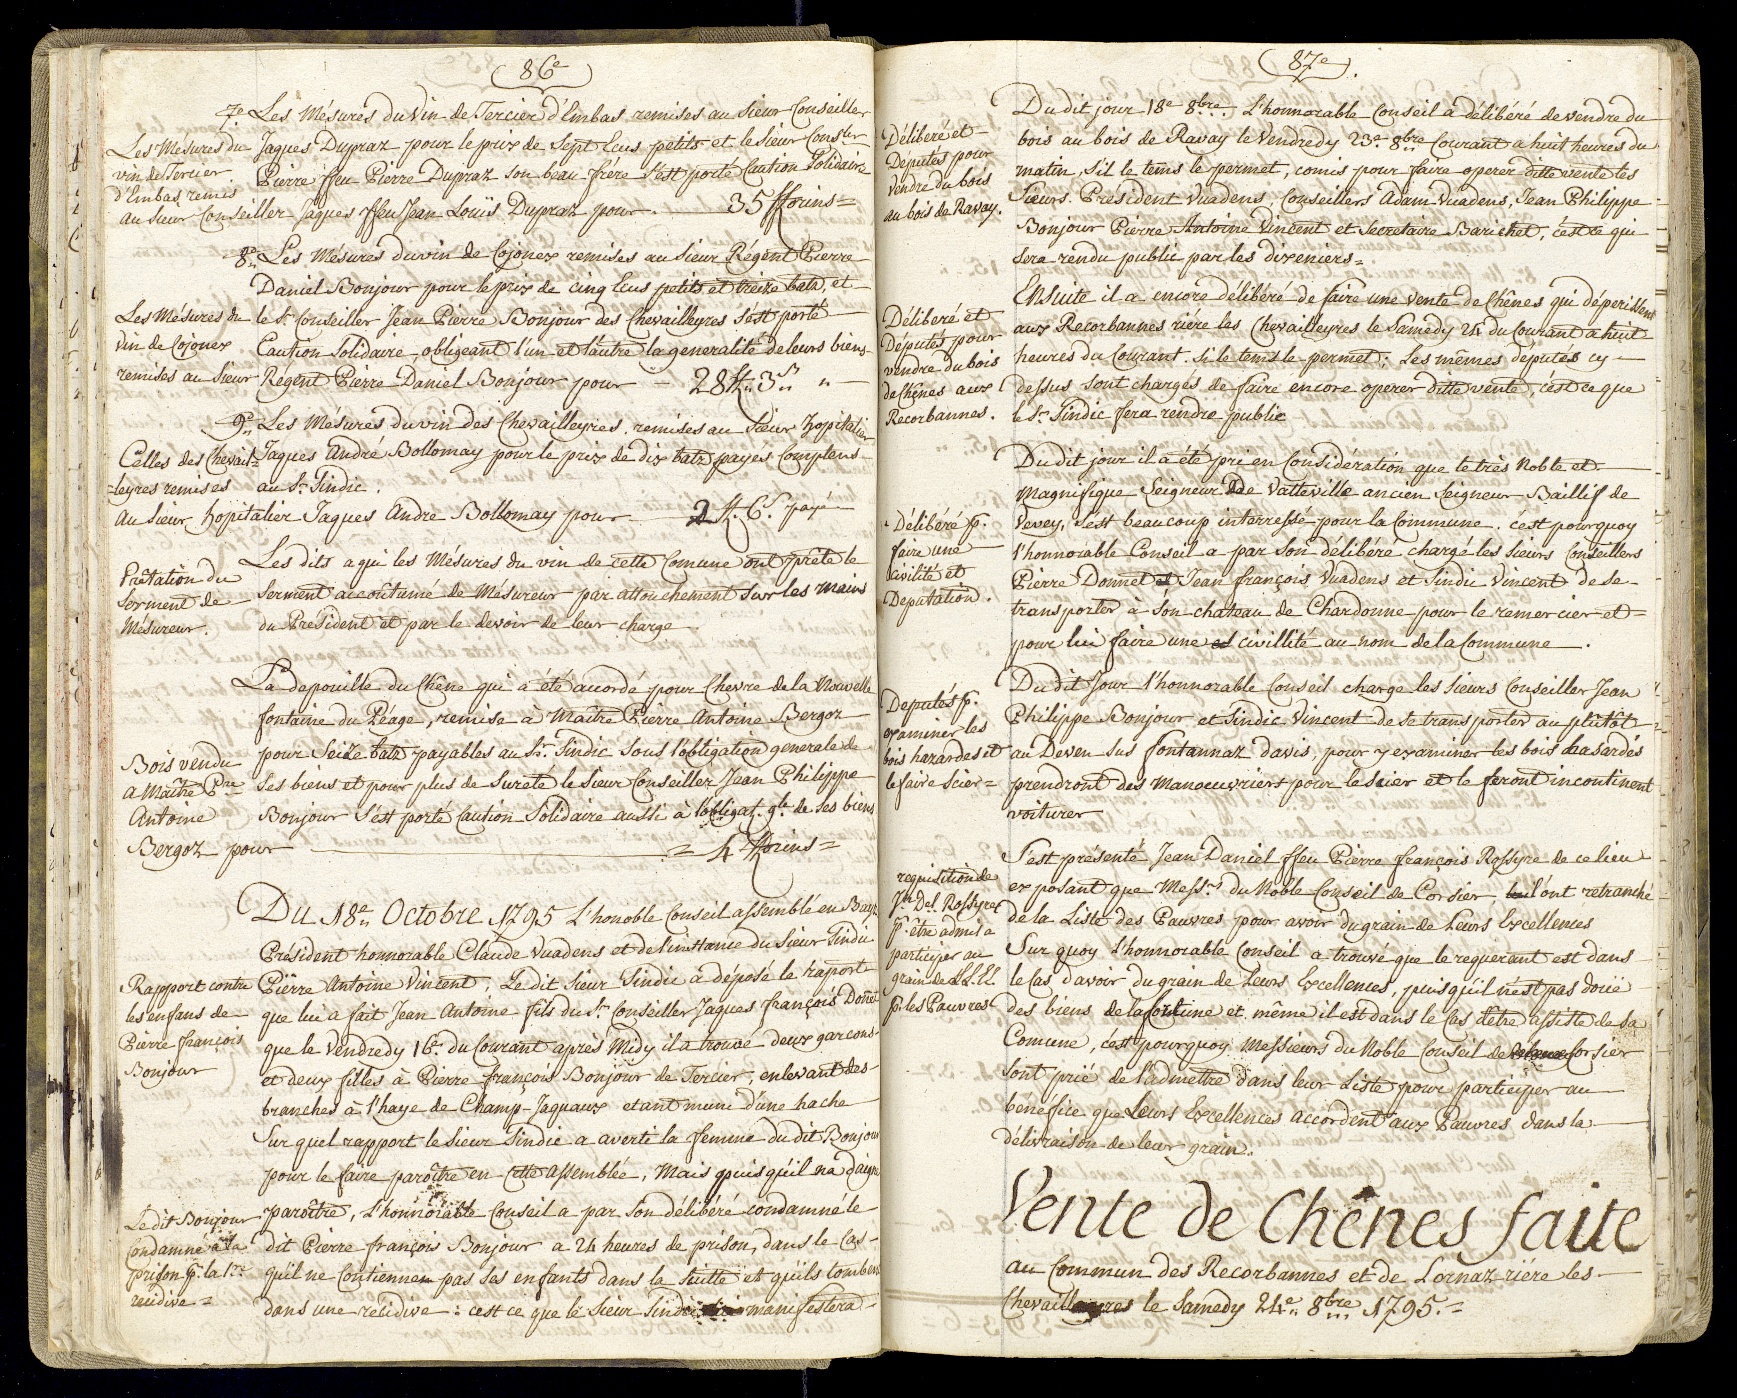 86e
7e Les Mésures du Vin de Tercier d'Embas remises au Sieur Conseiller
Les Mésures du
vin de Tercier
d'Embas, remis
Jaques Dupraz pour le prix de Sept Ecus petits et le Sieur Consler
Pierre ffeu Pierre Dupraz son beau-frére s'est porté Caution Solidaire
au Sieur Conseiller Jaques ffeu Jean Louïs Dupraz pour 35 fflorins=
8e Les Mésures du vin de Cojonex remises au Sieur Régent Pierre
Daniel Bonjour pour le prix de cinq Ecus petits et treize batz, et
Les Mésures du
vin de Cojonex
le Sr Conseiller Jean Pierre Bonjour des Chevailleyres s'est porté
Caution Solidaire, obligeant l'un et l'autre la generalité de leurs biens
remises au Sieur Régent Pierre Daniel Bonjour pour 28 ff: 3 s "
9e Les Mésures du vin des Chevailleyres, remises au Sieur hopitalier
Celles des Chevail=
=leyres remises
Jaques André Bollomay pour le prix de dix batz payes Complens
au Sr Sindic.
Au Sieur hopitalier Jaques Andre Bollomay pour 2 ff. 6 s. payé
Prêtation du
Serment de
Mésureur.
Les dits a qui les Mésures du vin de cette Comune ont prété le
Serment accoûtumé de Mésureur par attouchement sur les mains
du President et par le devoir de leur charge
La depouille du Chêne qui a été accordé pour Chevre de la Nouvelle
fontaine du Péage, remise à Maître Pierre Antoine Bergoz
Bois vendu
a Maître Pre
Antoine
pour Seize batz payables au Sr Sindic Sous l'obligation generale de
Ses biens et pour plus de Sureté le Sieur Conseiller Jean Philippe
Bonjour s'est porté Caution Solidaire aussi à l'obligat. gle de ses biens
Bergoz pour = 4 fflorins =
Du 18e Octobre 1795 L'honoble Conseil assemblé en Bayz
Président honnorable Claude Vuadens et de l'instance du Sieur Sindic
Rapport contre
les enfans de
Pierre françois
Bonjour
Pierre Antoine Vincent, Le dit Sieur Sindic a déposé le raport
que lui a fait Jean Antoine fils du Sr Conseiller Jaques françois Donnet
que le Vendredy 16e du Courant après Midy il a trouvé deux garcons
et deux filles à Pierre françois Bonjour de Tercier, enlevant des
branches à l'haye de Champ-Jaquaux etant muni d'une hache
Sur quel rapport le Sieur Sindic a averti la femme du dit Bonjour
pour le faire paroître en cette Assemblée, Mais puisqu'il n'a daigné
Le dit Bonjour
Condamné à la
prison pr. la 1re
recidive =
paroître, L'honnorable Conseil a par son délibéré condamné le
dit Pierre françois Bonjour a 24 heures de prison, dans le Cas
qu'il ne Contiennen pas ses enfants dans la Suitte et qu'ils tombent
dans une recidive: c'est ce que le Sieur Sindic manifestera
87e
Délibéré et
Députés pour
vendre du bois
au bois de Ravay.
Du dit jour 18e 8bre. L'honnorable Conseil a délibéré de vendre du
bois au bois de Ravay le Vendredy 23e 8bre Courant a huit heures du
matin, S'il le tems le permet, comis pour faire operer ditte vente les
Sieurs President Vuadens, Conseillers Adam Vuadens, Jean Philippe
Bonjour Pierre Antoine Vincent et Secretaire Barichet, c'est ce qui
Sera rendu public par les dixeniers=
Délibéré et
Députés pour
vendre du bois
de Chênes aux
Recorbannes.
Ensuite il a encore délibéré de faire une vente de Chênes qui déperissent
aux Recorbannes riére les Chevailleyres le Samedy 24 du Courant a huit
heures du Courant. Si le tems le permet; Les mêmes députés cy
dessus sont chargés de faire encore operer ditte vente, c'est ce que
le Sr Sindic fera rendre public
Délibéré pr.
faire une
civilité et
Deputation.
Du dit jour il a été pri en Considération que le très Noble et
Magnifique Seigneur De Vatteville ancien Seigneur Baillif de
Vevey, s'est beaucoup interressé pour la Commune. c'est pourquoy
l'honnorable Conseil a par son délibéré chargé les Sieurs Conseillers
Pierre Donnet et Jean françois Vuadens et Sindic Vincent de se
transporter à son chateau de Chardonne pour le remercier et=
pour lui faire une civillité au nom de la Commune.
Deputés pr.
examiner les
bois hazardes et
le faire Scier=
Du dit Jour l'honnorable Conseil charge les Sieurs Conseiller Jean
Philippe Bonjour et Sindic Vincent de se transporter au plûtôt
au Deven sus fontannaz davis, pour y examiner les bois hasardés
prendront des Manoeuvriers pour le Scier et le feront incontinent
voiturer
requisition de
Jn Del Rossyre
pr être admis a
participer au
grain de LL.EE.
pr. les Pauvres
S'est présenté Jean Daniel ffeu Pierre françois Rossyre de ce lieu
exposant que Messrs du Noble Conseil de Corsier l'ont retranché
de la Liste des Pauvres pour avoir du grain de Leurs Excellences
Sur quoy L'honnorable Conseil a trouvé que le requerant est dans
le Cas d'avoir du grain de Leurs Excellences, puisqu'il n'est pas doüé
des biens de la fortune et même il est dans le Cas d'être assisté de sa
Comune, c'est pourquoy Messieurs du Noble Conseil de Corsier
sont prié de l'admettre dans leur Liste pour participer au
bénéfice que Leurs Excellences accordent aux Pauvres dans la
délivraison de leur grain.
Vente de Chênes faite
au Commun des Recorbannes et de Lornaz riére les
Chevailleyres le Samedy 24e 8bre 1795.=